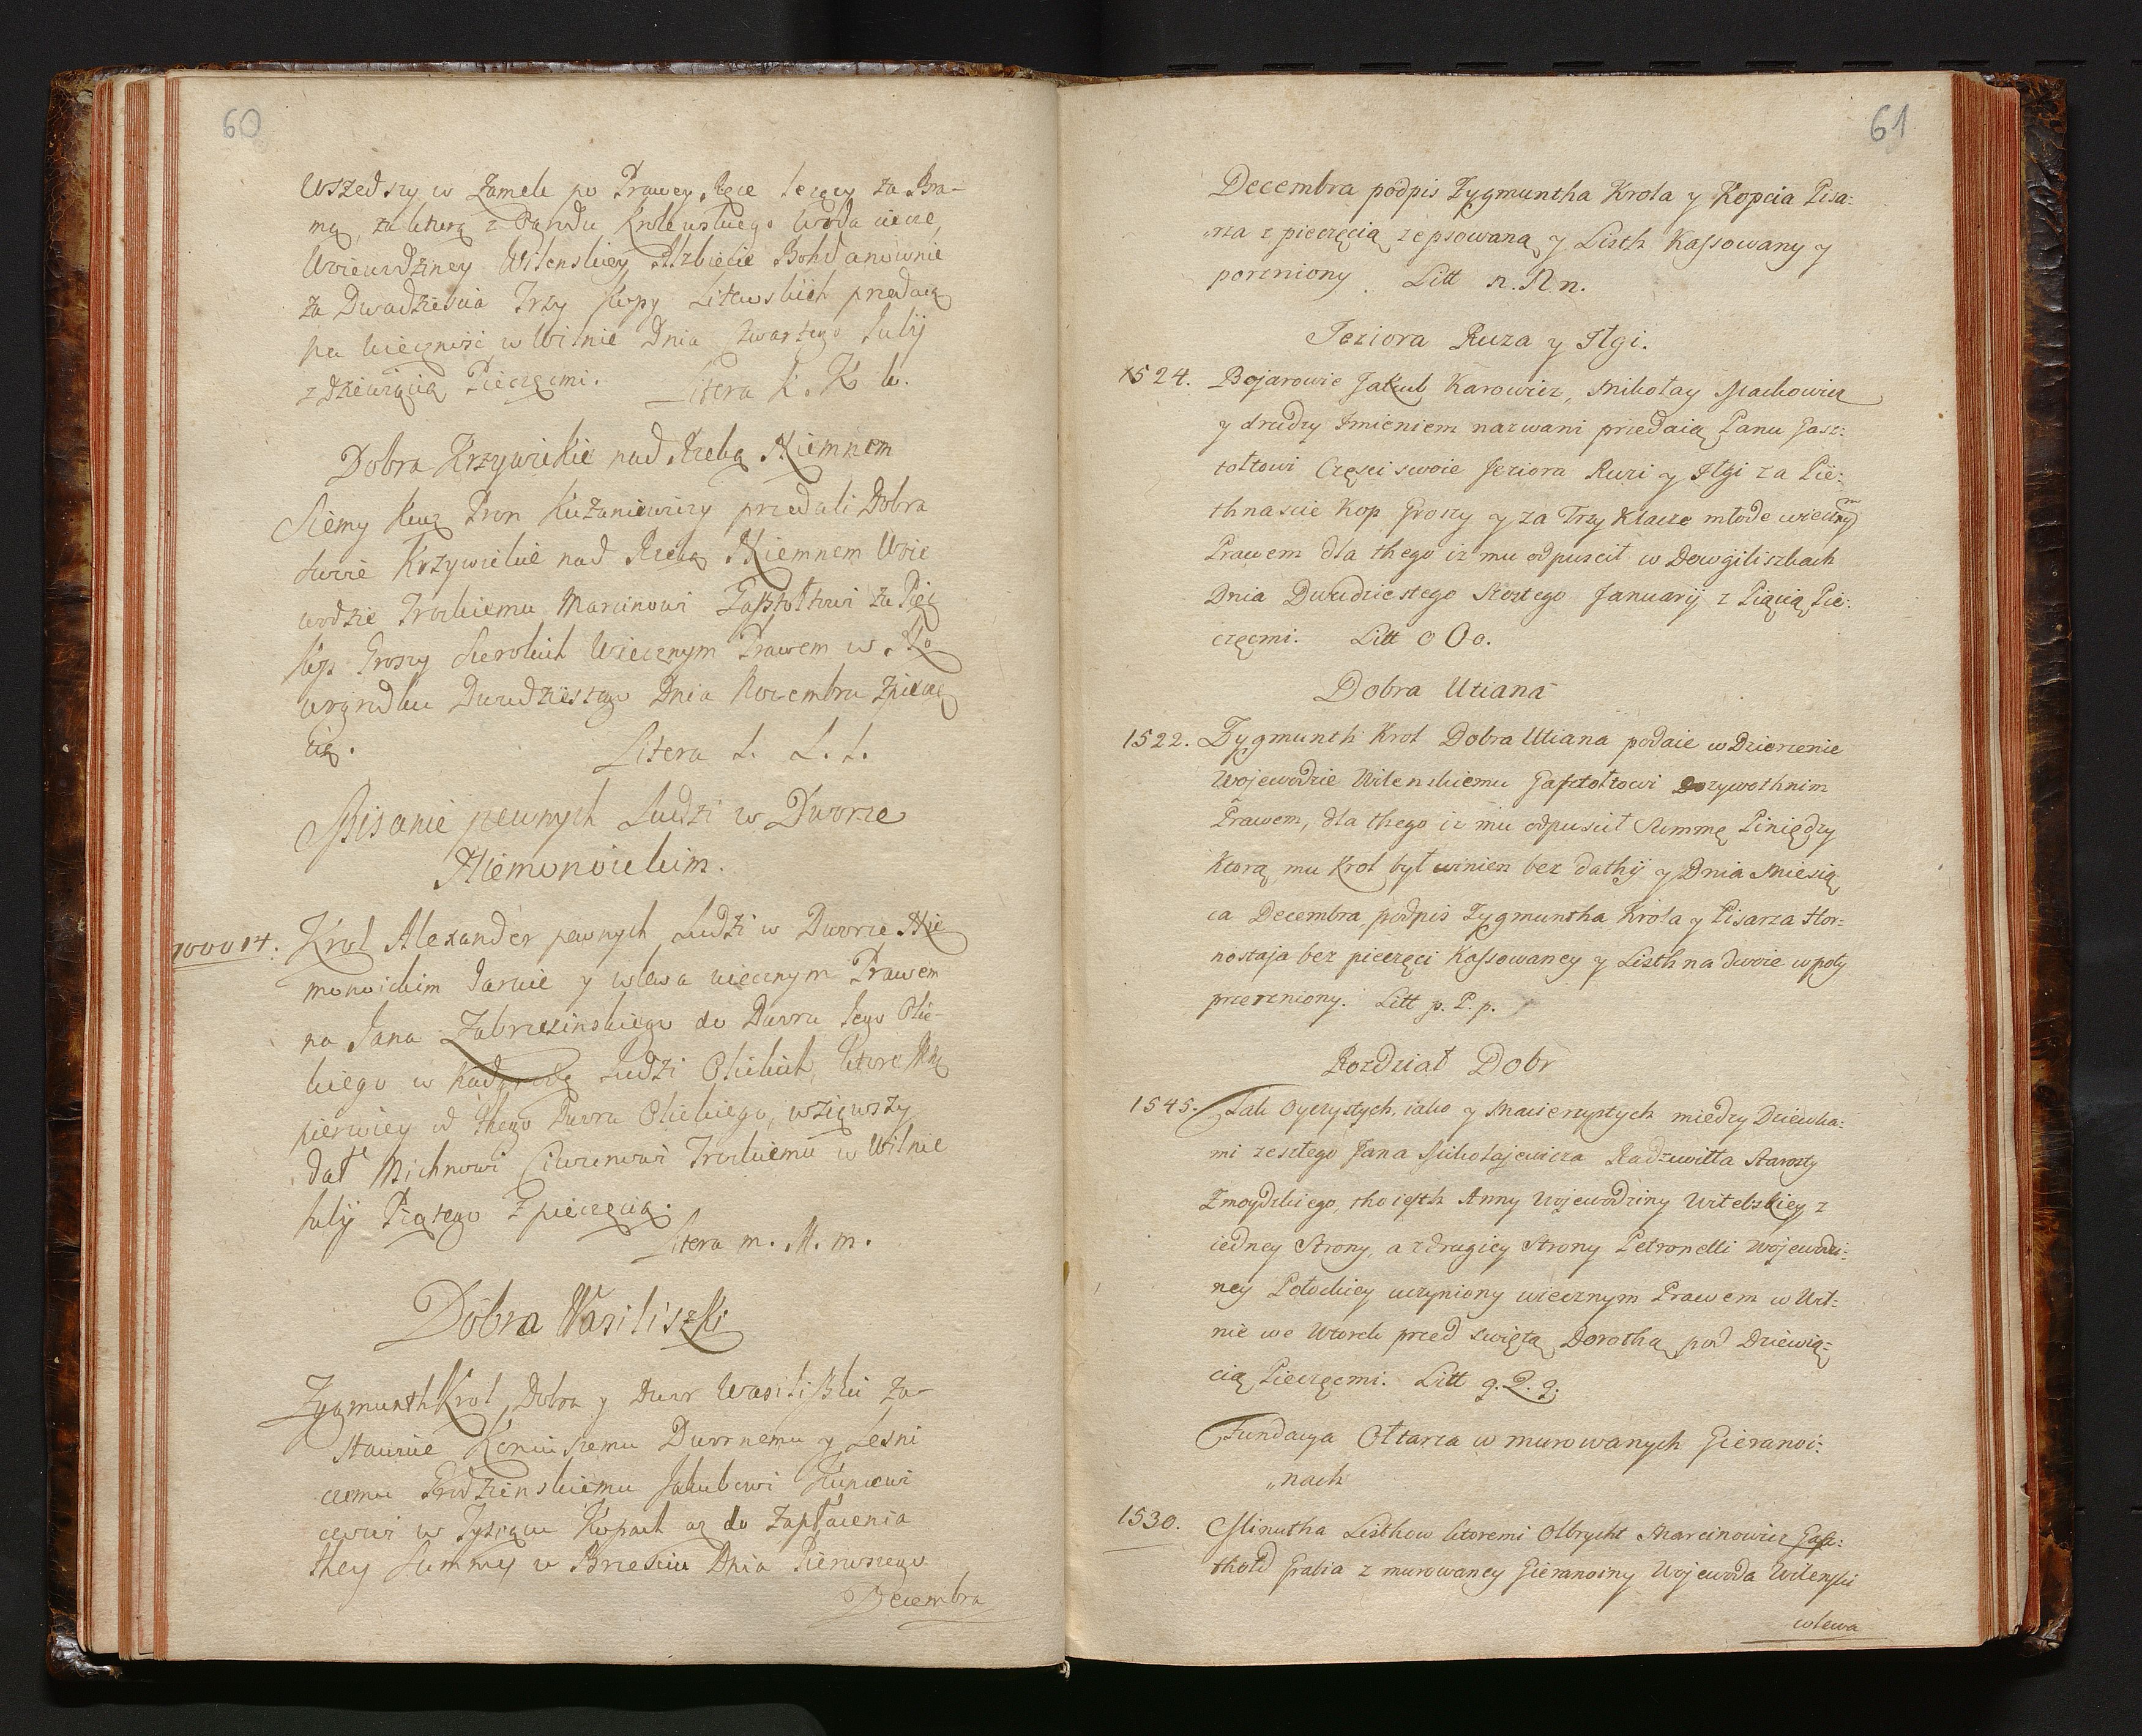 60
Wszedszy w Zamek po Prawey Ręce lezący za Bra-
mą, za ktorą z Sądu Krolewskiego woda ciecze,
Woiewodziney Wilenskiey Alzbiecie Bohdanownie
za Dwadziescia Trzy Kopy Litewskich przedaią
na wiecznosc w Wilnie Dnia Czwartego Julij
z Dziewiącią Pieczęcmi. Litera k. K. k.
Dobra Krzywickie nad Rzeką Niemnem
przedali Dobra
swoie Krzywickie nad Rzeką Niemnem Woie
wodzie Trockiemu Marcinowi Gasztołtowi za Pięc
kop Groszy Szerokich Wiecznym Prawem w No
wogrodku Dwudziestego Dnia Novembra z pieczę
cią. Litera l. L. l.
Spisanie pewnych Ludzi w Dworze
Niemonoickim.
100014. Krol Alexander pewnych Ludzi w Dworze Nie
monoickim Daruie y wlewa wiecznym Prawem
na Jana Zabrzezinskiego do Dworu Jego Olic-
kiego w Ludzi Olickich, ktore
pierwiey od thego Dworu Olickiego, wziąwszy
dał Michnowi Ciwunowi Trockiemu w Wilnie
Julij Piątego z pieczęcią.
Litera m. M. m.
Dobra Wasiliszki
Zygmunth Krol Dobra y Dwor Wasiliszki Za-
stawuie Koniuszemu Dwornemu y Lesni
czemu Grodzienskiemu Jakubowi Kuncewi
czowi w Tysiącu Kopach aż do Zapłacenia
they Summy w Brzesciu Dnia Pierwszego
Decembra
61
Decembra podpis Zygmuntha Krola y Kopcia Pisa:
„rza z pieczęcią zepsowaną y Listh Kassowany y
porzniony. Litt n. N n.
Jeziora Ruza y Iłgi.
1524. Bojarowie Jakub Karowicz, Mikołay Stackowicz
y drudzy Imieniem nazwani przedaią Panu Gasz:
tołtowi Częsci swoie Jeziora Ruzi y Iłgi za Pie:
thnascie Kop Groszy y za Trzy Klacze młode wiecznym
Prawem dla thego iz mu odpuscił w Dowgiliszkach
Dnia Dwudziestego Szostego Januarij z Piącią Pie:
częcmi. Litt o O o.
Dobra Uciana
1522. Zygmunth Krol Dobra Uciana podaie w Dzierzenie
Wojewodzie Wilenskiemu Gasztołtowi Dozywothnim
Prawem, dla thego iz mu odpuscił Summę Piniędzy
Ktorą mu Krol był winien bez dathy y Dnia Miesią
ca Decembra, podpis Zygmuntha Krola y Pisarza Hor:
nostaja bez pieczęci Kassowaney y Listh na dwoie w poły
przerzniony. Litt p. P. p.
Rozdział Dobr
1545. Tak Oyczystych, iako y Macierzystych miedzy Dziewka:
mi zeszłego Jana Mikołajewicza Radziwiłła Starosty
Zmoydzkiego, tho iesth Anny Wojewodziny Witebskiey z
iedney Strony, a z drugiey Strony Petronelli Wojewodzi:
ney Połockiey uczyniony wiecznym Prawem w Wil:
nie we Wtorek przed Swiętą Dorothą pod Dziewią:
cią Pieczęcmi. Litt q. Q. q.
Fundacya Ołtarza w murowanych Gieranoi:
„nach
1530. Minutha Listhow ktoremi Olbrycht Marcinowicz Gasz:
thołd Grabia z murowaney Gieranoiny Wojewoda Wilenski
wlewa